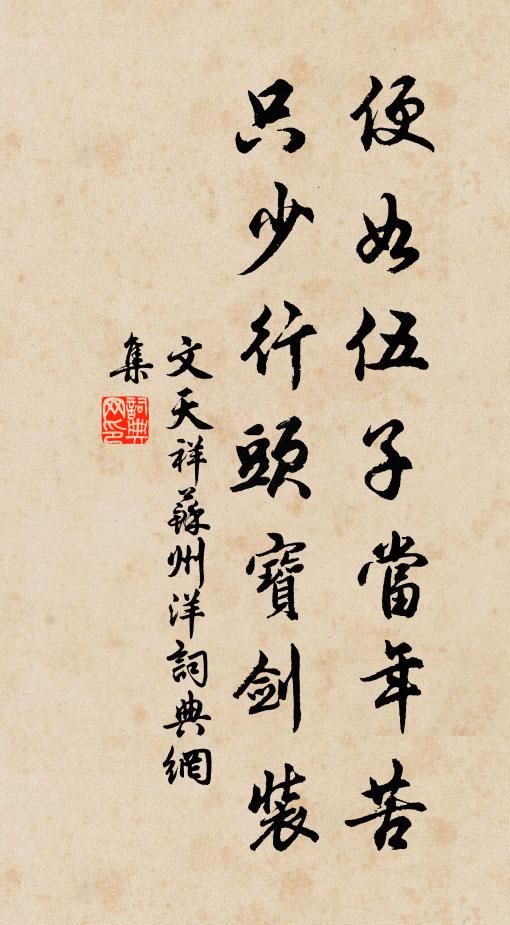 便如伍子當年苦
只少行頭寶劍裝
文天祥蘇州洋詞典網
集
詞典網印